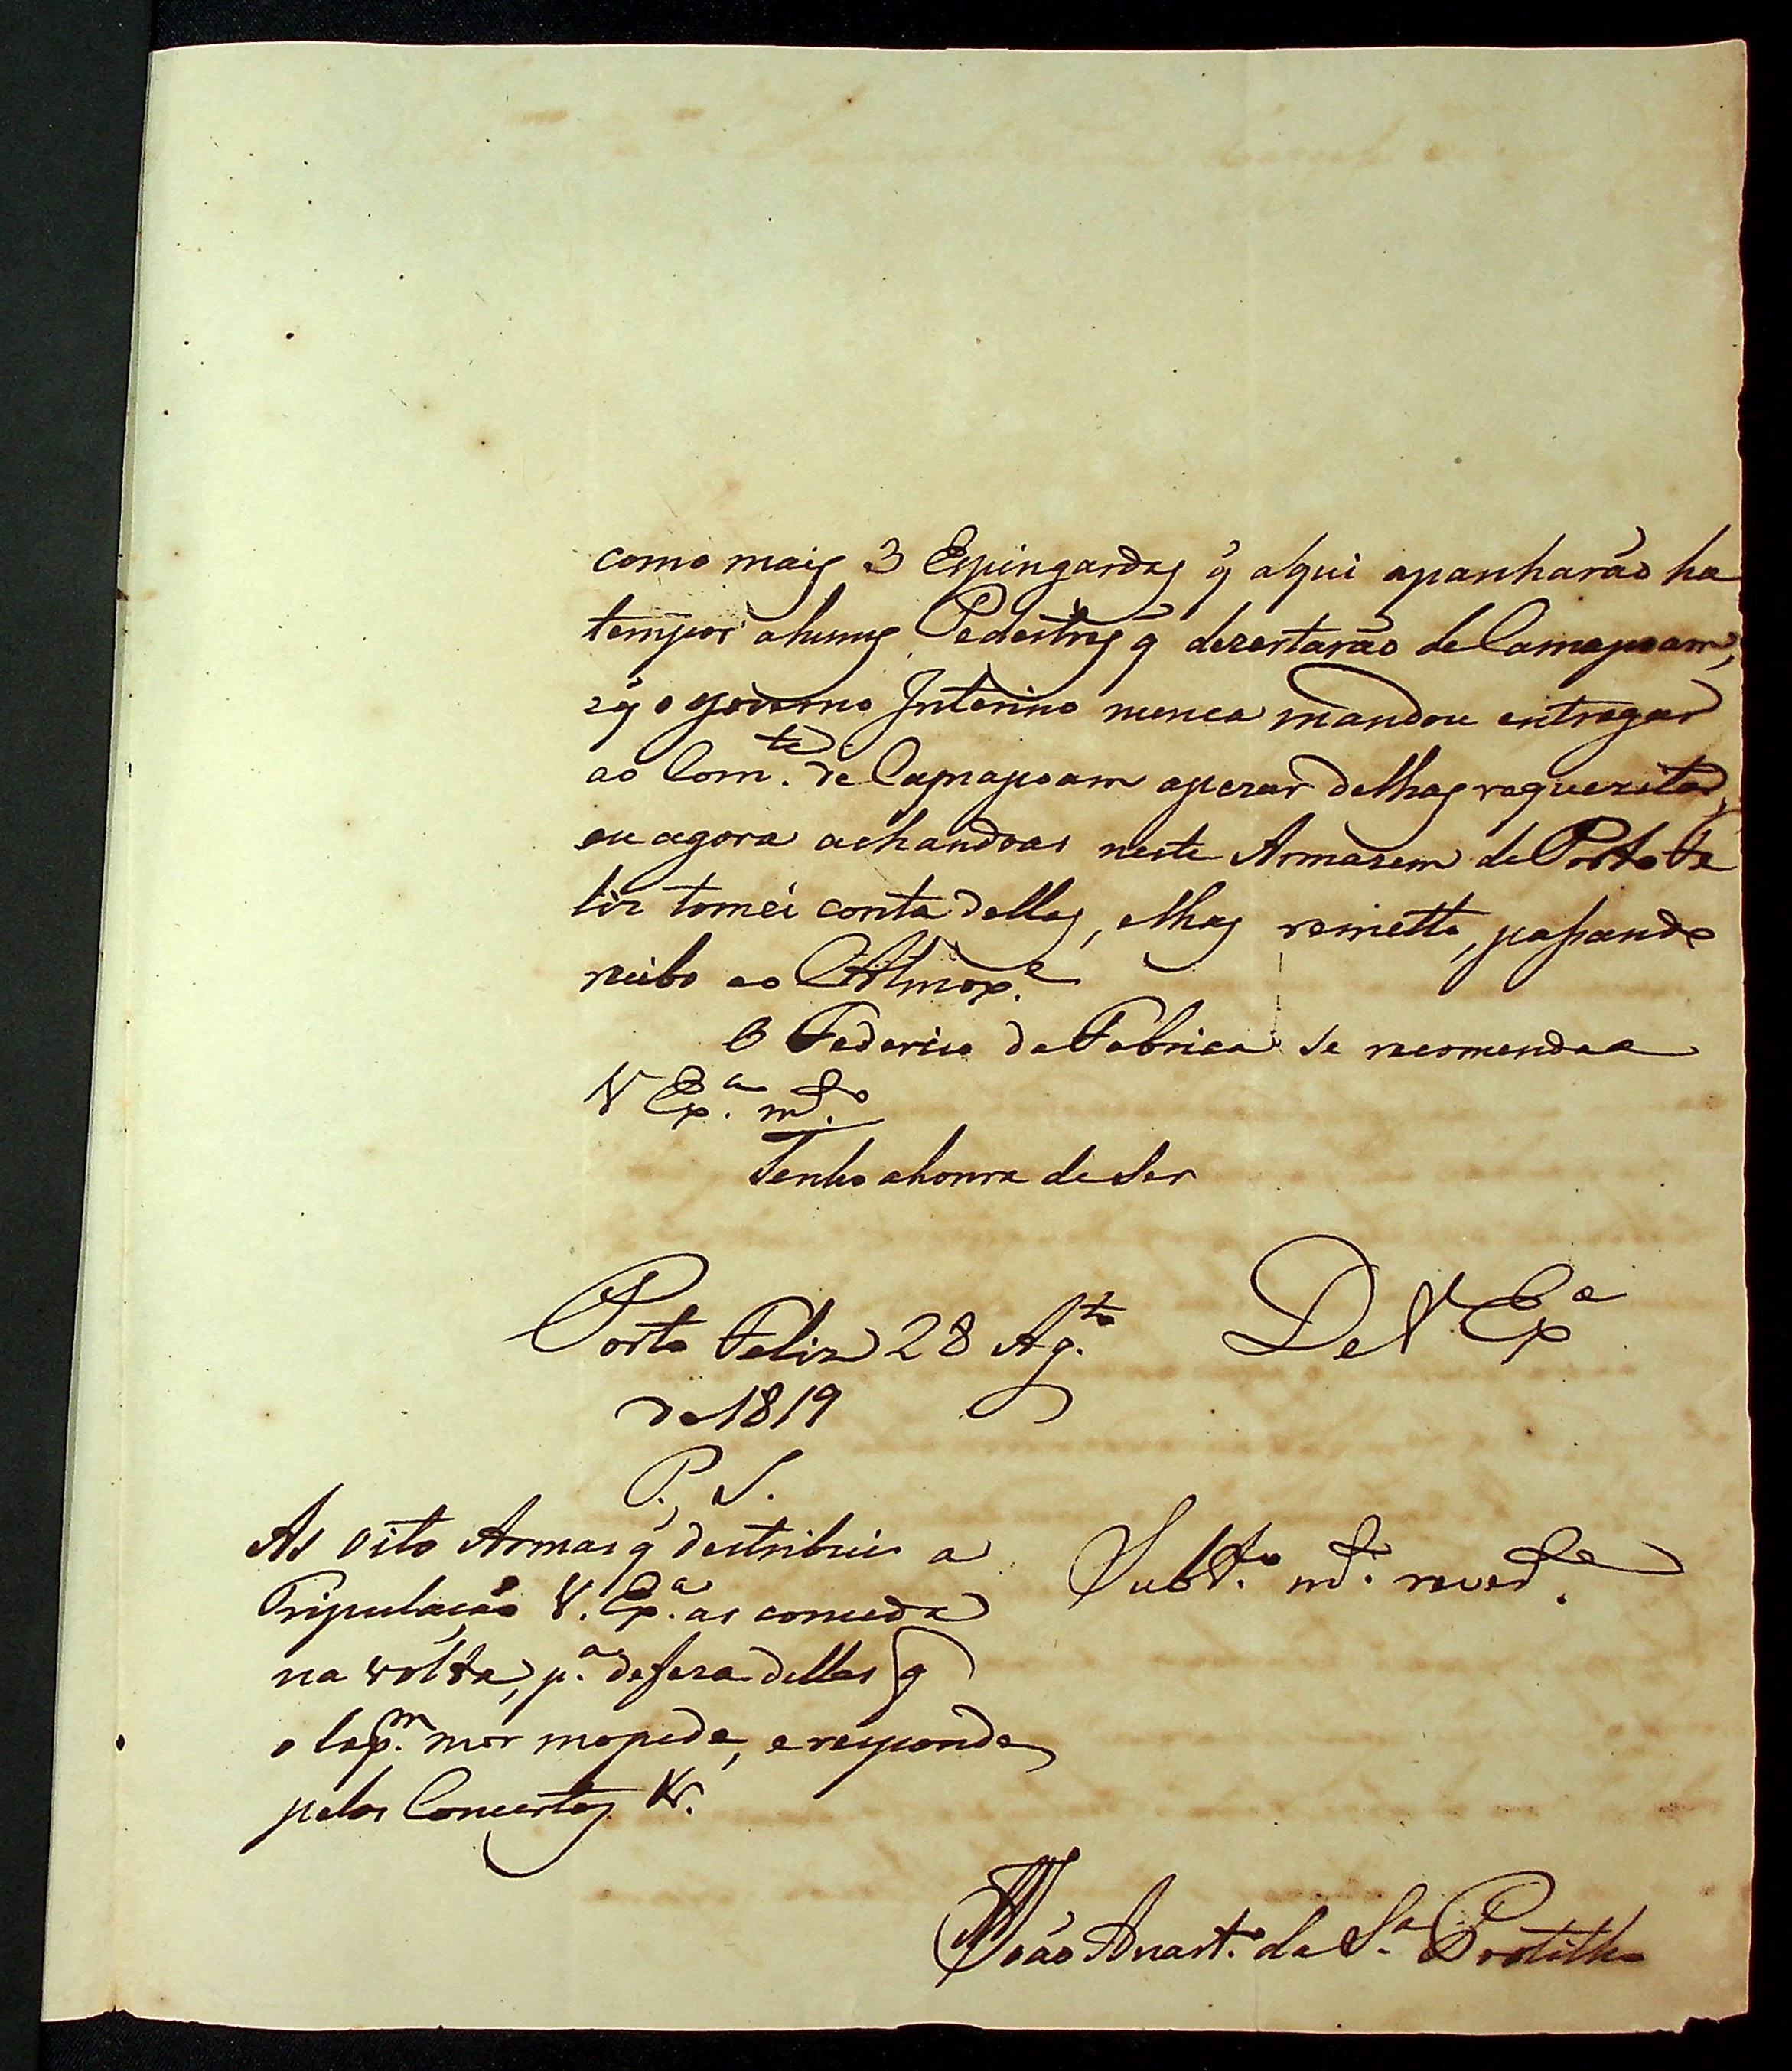 como mais 3 Espingardas q̃ aqui apanharão ha
tempos a huns Pedestres q̃ dezertarão de Camapoam,
e q̃ o Governo Interino nunca mandou entregar
ao Com.te de Camapoam apezar delhas requezitar,
eu agora achandoas neste Armazem de Porto Fe
liz tomei conta dellas, elhas remetto, passando
recibo ao Almox.e
O Federico da Fabrica se recomenda a
V Ex.a m.to
Tenho a honra de Ser
De V. Ex.a
Porto Feliz 28 Ag.to
de 1819
P. S.
As oito Armas q̃ destribui a
Tripulação V. Ex.a as conceda
na volta, p.a defeza delles q̃
o Cap.m mor mas pede, e responde
pelos Concertos &.
Subd.to m.to rever.te
João Anast.o da S.a Portilho